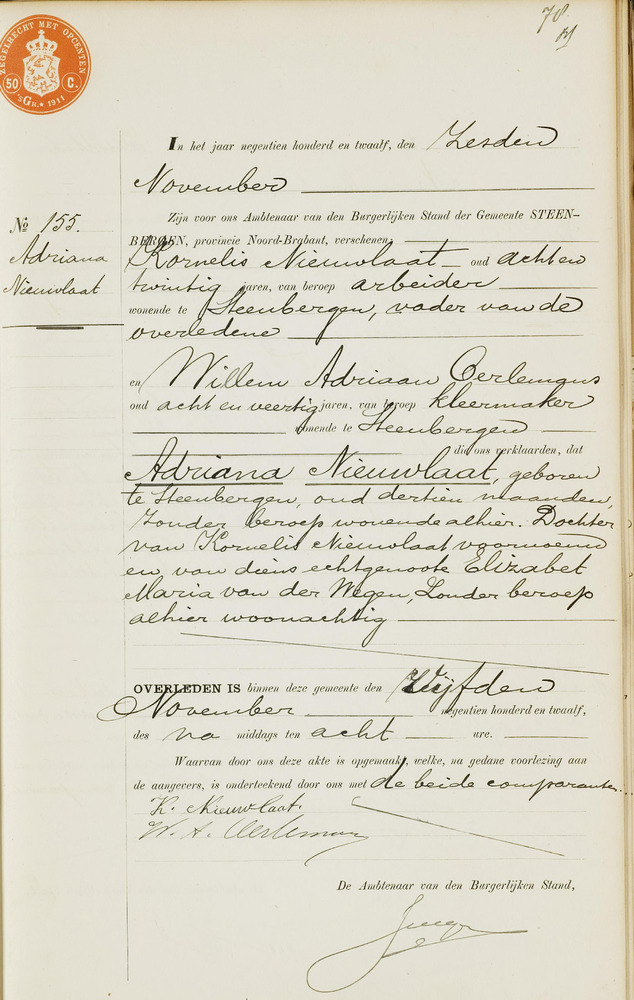 78
ZEGELRECHT MET OPCENTEN
50 C.
'SGR. * 1911
In het jaar negentien honderd en twaalf, den Zesden
November
Nº 155.
Adriana
Nieuwlaat
Zijn voor ons Ambtenaar van den Burgerlijken Stand der Gemeente STEEN-
BERGEN, provincie Noord-Brabant, verschenen,
Kornelis Nieuwlaat oud acht en
twintig jaren, van beroep arbeider
wonende te Steenbergen, vader van de
overledene
en Willem Adriaan Oerlemans
oud acht en veertig jaren, van beroep kleermaker
wonende te Steenbergen
die ons verklaarden, dat
Adriana Nieuwlaat, geboren
te Steenbergen, oud dertien maanden,
zonder beroep wonende alhier. Dochter
van Kornelis Nieuwlaat voornoemd
en van diens echtgenoote Elizabet
Maria van der Wegen, zonder beroep
alhier woonachtig
OVERLEDEN IS binnen deze gemeente den Vijfden
November negentien honderd en twaalf,
des na middags ten acht ure.
Waarvan door ons deze akte is opgemaakt, welke, na gedane voorlezing aan
de aangevers, is onderteekend door ons met de beide comparanten.
K. Nieuwlaat.
W. A. Oerlemans
De Ambtenaar van den Burgerlijken Stand,